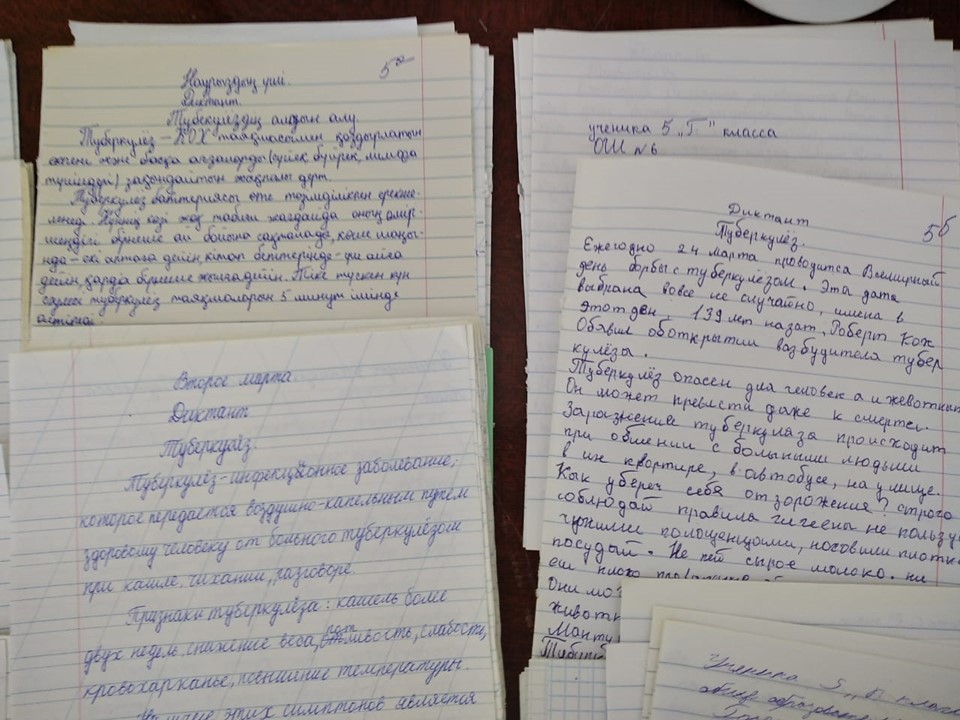 5
Наурыздың үші.
Диктант.
Туберкулёздің алдын алу.
Туберкулёз – КОХ таяқшасымен қоздырлатын
өкпені және басқа ағзаларды (сүйек бүйрек, лимфа
түйіндері) зақымдайтын жұқпалы дерт.
Туберкулез бактериясы өте төзімділікпен ерекше-
ленеді. Күннің көзі жоқ табиғи жағдайда оның өмір-
шеңдігі бірнеше ай бойына сақталады, көше шаңы-
нда – екі аптаға дейін, кітап беттерінде – үш айға
дейін, қарда бірнеше жылға дейін. Тіке түскен күн
сәулесі туберкулёз таяқшаларын 5 минут ішінде
Второе марта.
Диктант
Туберкулёз.
Туберкулёз – инфекционное заболевание,
которое передается воздушно-капельным путём
здоровому человеку от больного туберкулёзом
при кашле, чихании, разговоре.
Признаки туберкулёза: кашель более
двух недель, снижение веса, потливость, слабость,
кровохарканье, повышние температуры.
этих симптомов является
ученика 5 „Г" класса
ОШ №6
Диктант
5б
Туберкулёз.
Ежегодно 24 марта проводитса Всемирный
день борбы с туберкулёзом. Эта дата
выбрана вовсе не случайно, имена в
этот ден, 139 лет назат, Роберт Кох
Обявил оботкрытии возбудителя тубер
кулёзы.
Туберкулёз опасен для человек а и животных
Он может превлсти даже к смертси.
Заражение туберкулаза происходит
при обшении с больными людьми
в их квартире, в автобусе, на улице.
Как уберечь себя от заражения? строго
соблюдай правила гигеены не пользу
чужими полощенцоми, носовыми платк
посудай. Не пей сырое молоко. ни
еш плохо
Они мо
живот
Манту
Ученика 5 „ класс